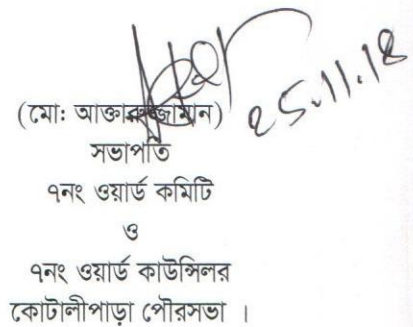 25.11.18
(মো: আক্তারুজ্জামান)
সভাপতি
৭নং ওয়ার্ড কমিটি
ও
৭নং ওয়ার্ড কাউন্সিলর
কোটালীপাড়া পৌরসভা ।